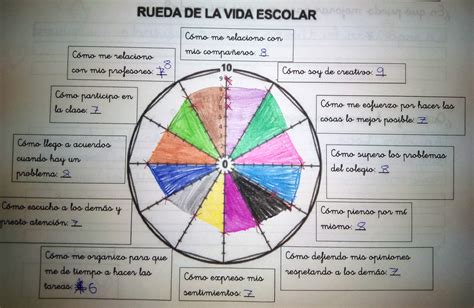 RUEDA DE LA VIDA ESCOLAR
Cómo me relaciono con
mis compañeros: 8
Cómo me relaciono
con mis profesores: 8
Cómo soy de creativo: 9
10
9
0
Cómo participo en
la clase: 7
Cómo me esfuerzo por hacer las
cosas lo mejor posible: 7
Cómo llego a acuerdos
cuando hay un
problema: 8
Cómo supero los problemas
del colegio: 8
Cómo escucho a los demás y
presto atención: 7
Cómo pienso por mí
mismo: 8
Cómo me organizo para que
me de tiempo a hacer las
tareas: 6
Cómo expreso mis
sentimientos: 7
Cómo defiendo mis opiniones
respetando a los demás: 7